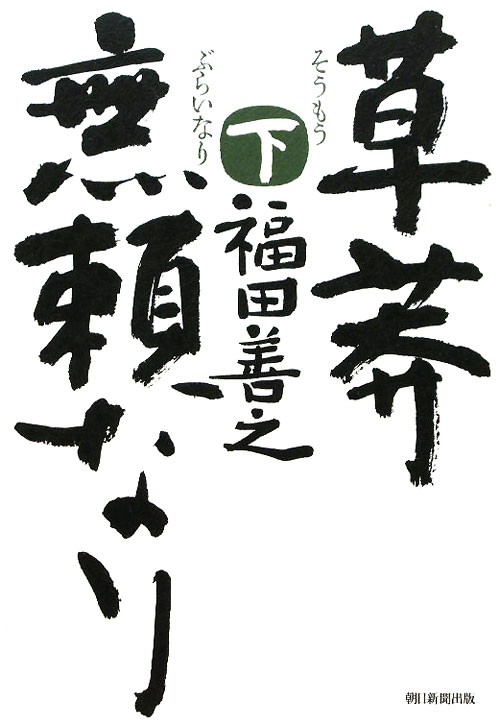 草莽
そうもう
無頼なり
ぶらいなり
下
福田善之
朝日新聞出版